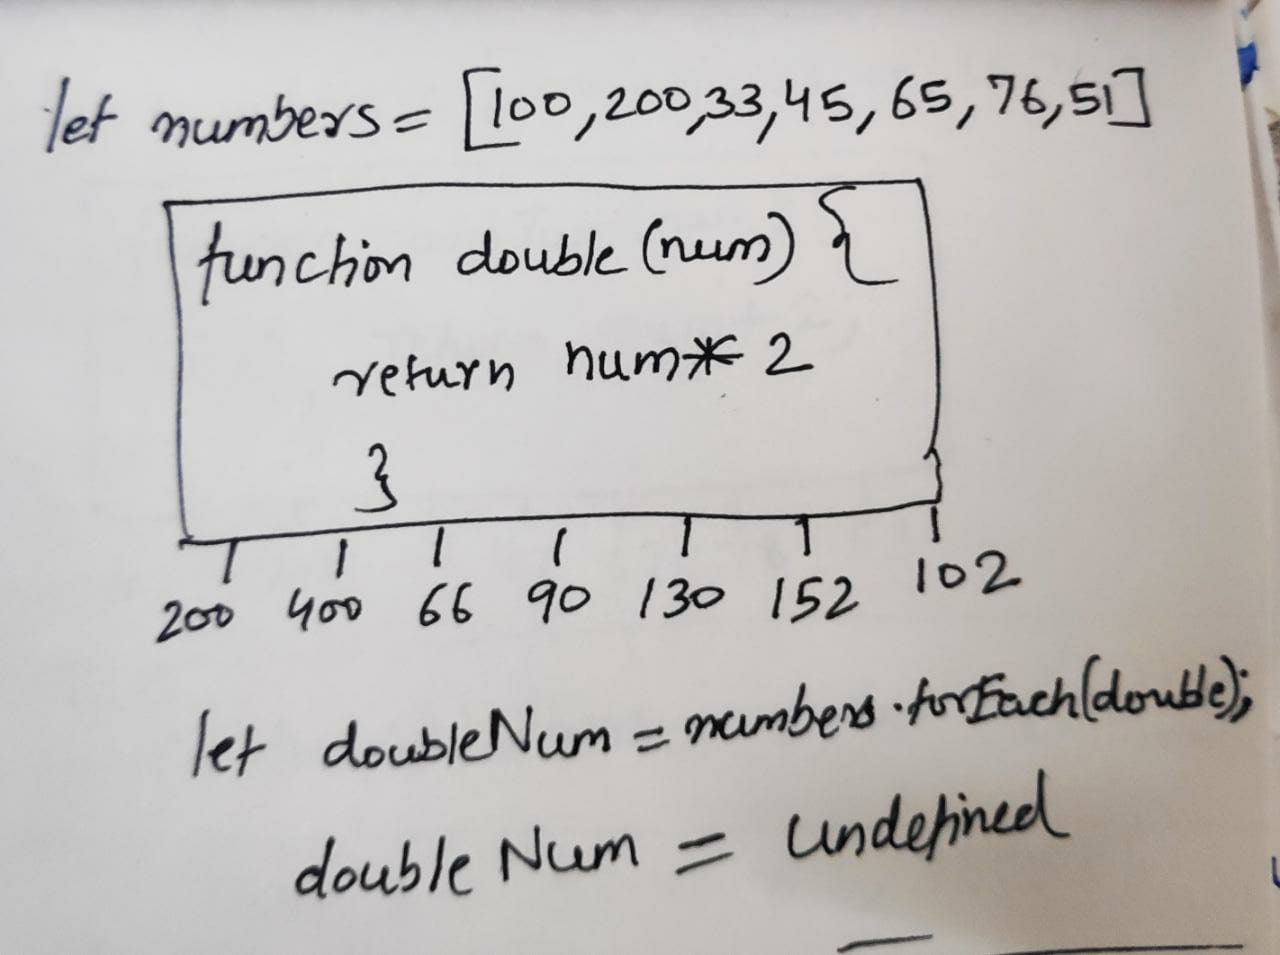 let numbers = [100,200,33,45,65,76,51]
function double (num) {
return num * 2
}
200 400 66 90 130 152 102
let doubleNum = numbers.forEach(double);
doubleNum = undefined